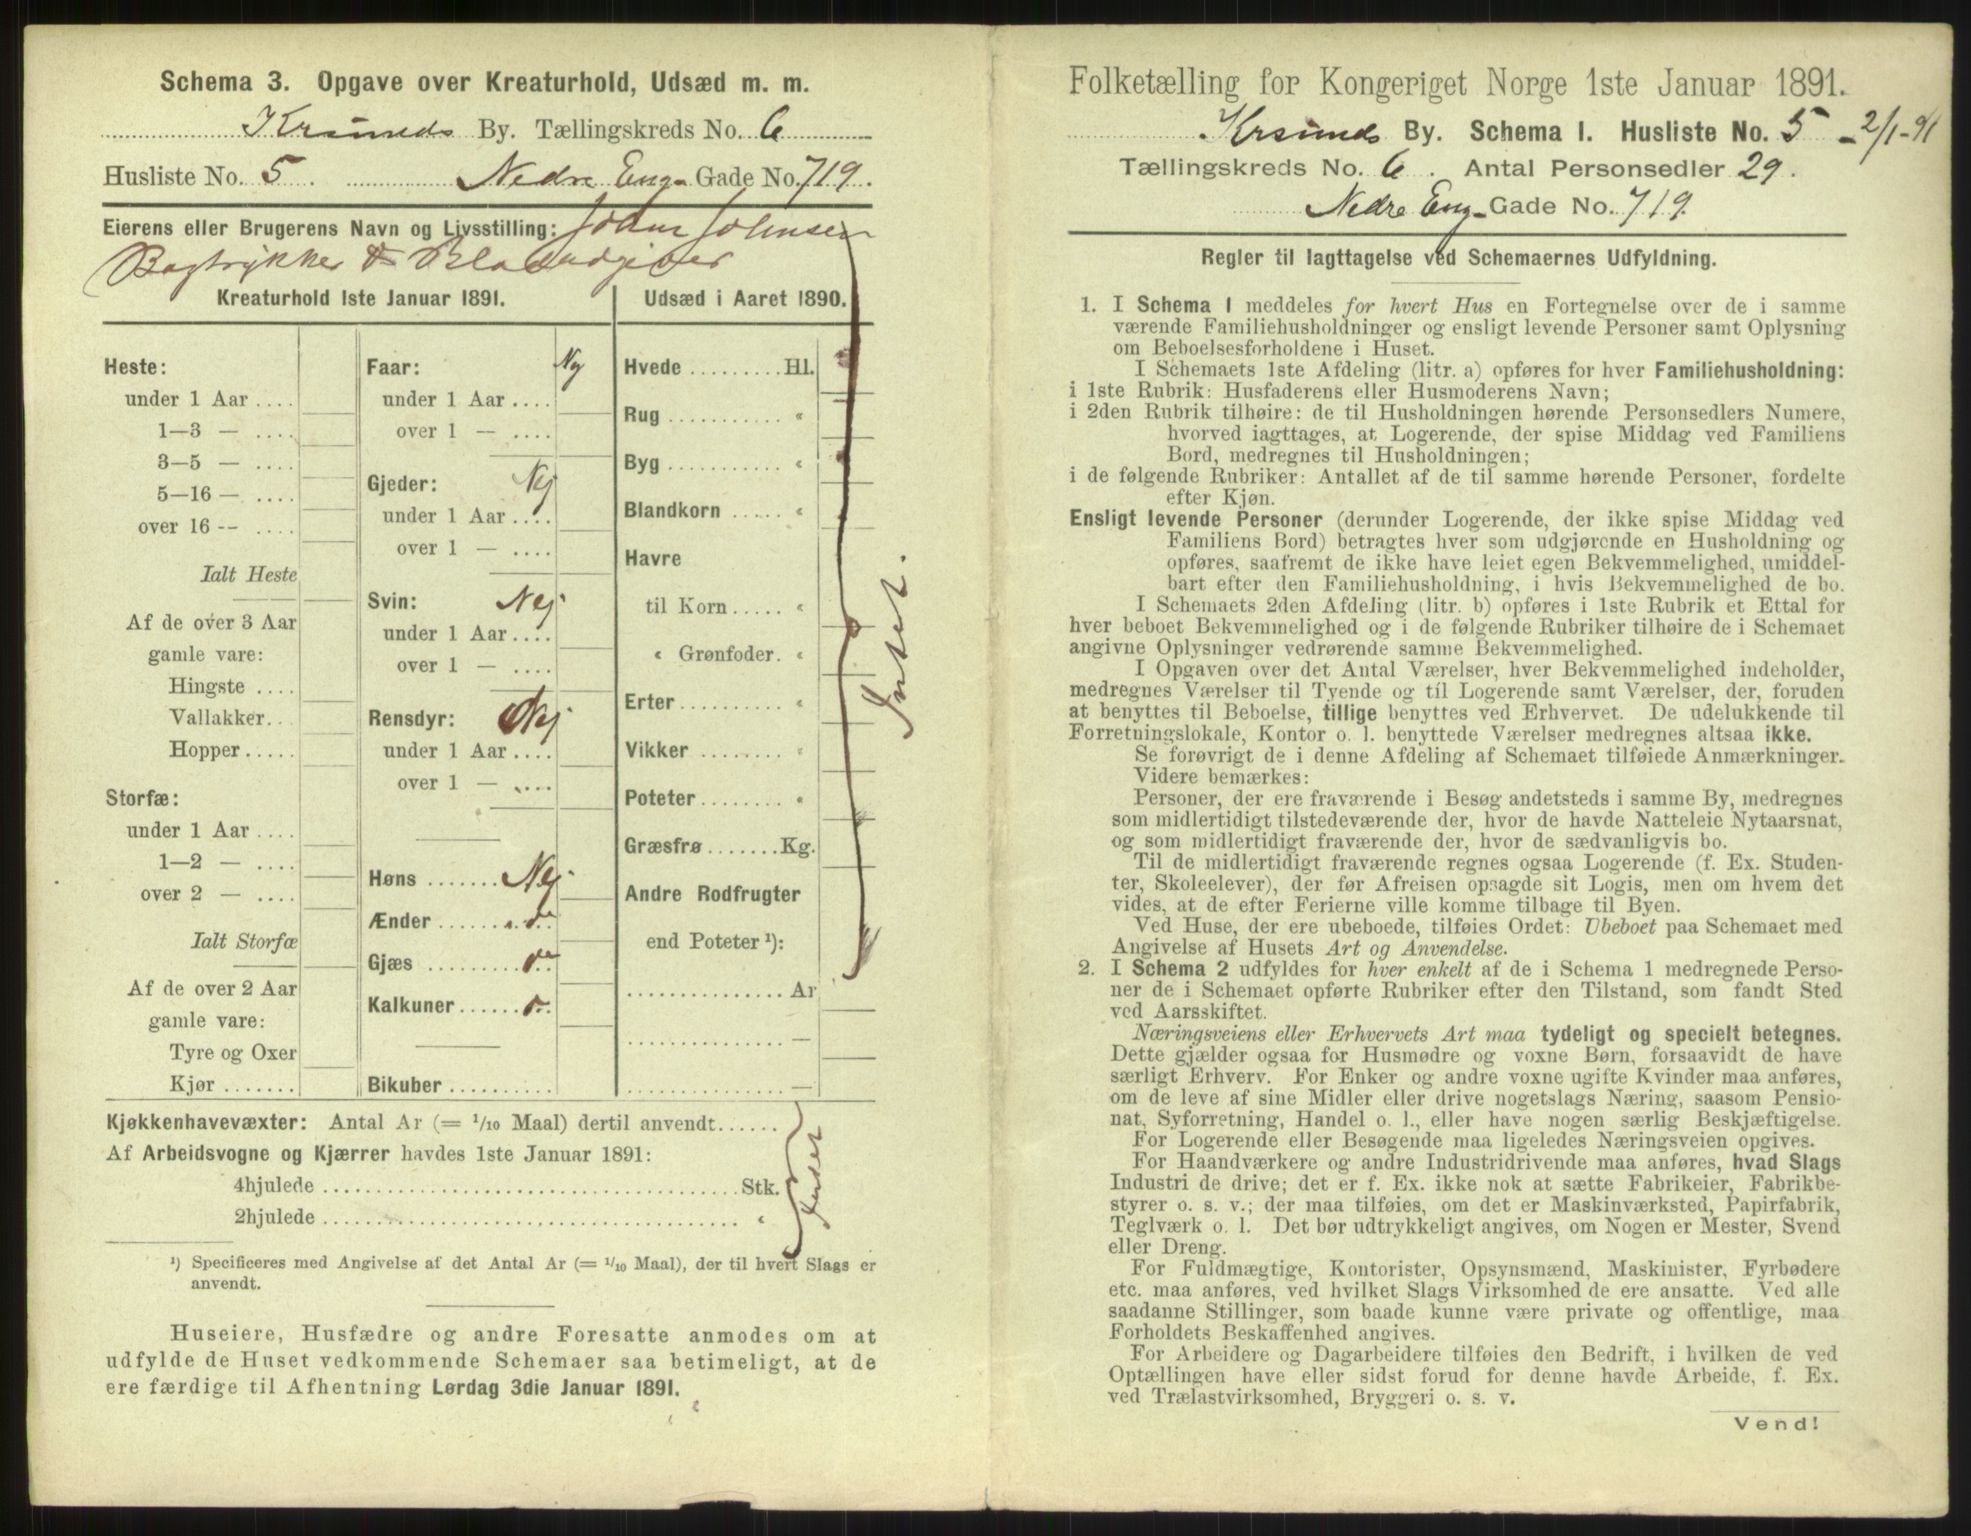 Schema 3. Opgave over Kreaturhold, Udsæd m. m.
Krsunds By. Tællingskreds No. 6
Husliste No. 5. Nedre Eng- Gade No. 719.
Eierens eller Brugerens Navn og Livsstilling: Johan Johnsen
Bogtrykker & Bladudgiver
Kreaturhold 1ste Januar 1891.
Heste:
under 1 Aar ....
1—3 — ....
3—5 — ....
5—16 — ....
over 16 -- ....
Ialt Heste
Af de over 3 Aar
gamle vare:
Hingste ....
Vallakker...
Hopper.....
Storfæ:
under 1 Aar ....
1—2 — ....
over 2 — ....
Ialt Storfæ
Af de over 2 Aar
gamle vare:
Tyre og Oxer
Kjør .......
Faar: Nej
under 1 Aar ....
over 1 — ....
Gjeder: Nej
under 1 Aar ....
over 1 — ....
Svin: Nej
under 1 Aar ....
over 1 — ....
Rensdyr: Nej
under 1 Aar ....
over 1 — ....
Høns ....... Nej
Ænder ........ do
Gjæs ......... do
Kalkuner ...... do
Bikuber ..........
Udsæd i Aaret 1890.
Hvede ......... Hl.
Rug ........... «
Byg ........... «
Blandkorn ..... «
Havre
til Korn ..... «
« Grønfoder. «
Erter .......... «
Vikker ........ «
Poteter ........ «
Græsfrø ....... Kg.
Andre Rodfrugter
end Poteter ¹):
............... Ar
............... —
............... —
Intet.
Kjøkkenhavevæxter: Antal Ar (= 1/10 Maal) dertil anvendt......
Af Arbeidsvogne og Kjærrer havdes 1ste Januar 1891:
4hjulede ........................................ Stk.
2hjulede ........................................ «
Intet
¹) Specificeres med Angivelse af det Antal Ar (= 1/10 Maal), der til hvert Slags er
anvendt.
Huseiere, Husfædre og andre Foresatte anmodes om at
udfylde de Huset vedkommende Schemaer saa betimeligt, at de
ere færdige til Afhentning Lørdag 3die Januar 1891.
Folketælling for Kongeriget Norge 1ste Januar 1891.
Krsunds By. Schema 1. Husliste No. 5 - 2/1-91
Tællingskreds No. 6. Antal Personsedler 29.
Nedre Eng- Gade No. 719.
Regler til Iagttagelse ved Schemaernes Udfyldning.
1. I Schema 1 meddeles for hvert Hus en Fortegnelse over de i samme
værende Familiehusholdninger og ensligt levende Personer samt Oplysning
om Beboelsesforholdene i Huset.
I Schemaets 1ste Afdeling (litr. a) opføres for hver Familiehusholdning:
i 1ste Rubrik: Husfaderens eller Husmoderens Navn;
i 2den Rubrik tilhøire: de til Husholdningen hørende Personsedlers Numere,
hvorved iagttages, at Logerende, der spise Middag ved Familiens
Bord, medregnes til Husholdningen;
i de følgende Rubriker: Antallet af de til samme hørende Personer, fordelte
efter Kjøn.
Ensligt levende Personer (derunder Logerende, der ikke spise Middag ved
Familiens Bord) betragtes hver som udgjørende en Husholdning og
opføres, saafremt de ikke have leiet egen Bekvemmelighed, umiddel-
bart efter den Familiehusholdning, i hvis Bekvemmelighed de bo.
I Schemaets 2den Afdeling (litr. b) opføres i 1ste Rubrik et Ettal for
hver beboet Bekvemmelighed og i de følgende Rubriker tilhøire de i Schemaet
angivne Oplysninger vedrørende samme Bekvemmelighed.
I Opgaven over det Antal Værelser, hver Bekvemmelighed indeholder,
medregnes Værelser til Tyende og til Logerende samt Værelser, der, foruden
at benyttes til Beboelse, tillige benyttes ved Erhvervet. De udelukkende til
Forretningslokale, Kontor o. l. benyttede Værelser medregnes altsaa ikke.
Se forøvrigt de i denne Afdeling af Schemaet tilføiede Anmærkninger.
Videre bemærkes:
Personer, der ere fraværende i Besøg andetsteds i samme By, medregnes
som midlertidigt tilstedeværende der, hvor de havde Natteleie Nytaarsnat,
og som midlertidigt fraværende der, hvor de sædvanligvis bo.
Til de midlertidigt fraværende regnes ogsaa Logerende (f. Ex. Studen-
ter, Skoleelever), der før Afreisen opsagde sit Logis, men om hvem det
vides, at de efter Ferierne ville komme tilbage til Byen.
Ved Huse, der ere ubeboede, tilføies Ordet: Ubeboet paa Schemaet med
Angivelse af Husets Art og Anvendelse.
2. I Schema 2 udfyldes for hver enkelt af de i Schema 1 medregnede Perso-
ner de i Schemaet opførte Rubriker efter den Tilstand, som fandt Sted
ved Aarsskiftet.
Næringsveiens eller Erhvervets Art maa tydeligt og specielt betegnes.
Dette gjælder ogsaa for Husmødre og voxne Børn, forsaavidt de have
særligt Erhverv. For Enker og andre voxne ugifte Kvinder maa anføres,
om de leve af sine Midler eller drive nogetslags Næring, saasom Pensio-
nat, Syforretning, Handel o. l., eller have nogen særlig Beskjæftigelse.
For Logerende eller Besøgende maa ligeledes Næringsveien opgives.
For Haandværkere og andre Industridrivende maa anføres, hvad Slags
Industri de drive; det er f. Ex. ikke nok at sætte Fabrikeier, Fabrikbe-
styrer o. s. v.; der maa tilføies, om det er Maskinværksted, Papirfabrik,
Teglværk o. l. Det bør udtrykkeligt angives, om Nogen er Mester, Svend
eller Dreng.
For Fuldmægtige, Kontorister, Opsynsmænd, Maskinister, Fyrbødere
etc. maa anføres, ved hvilket Slags Virksomhed de ere ansatte. Ved alle
saadanne Stillinger, som baade kunne være private og offentlige, maa
Forholdets Beskaffenhed angives.
For Arbeidere og Dagarbeidere tilføies den Bedrift, i hvilken de ved
Optællingen have eller sidst forud for denne havde Arbeide, f. Ex.
ved Trælastvirksomhed, Bryggeri o. s. v.
Vend!